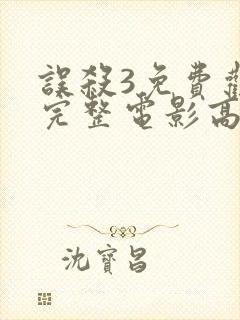 誤殺3免費
完整電影高
沈寶昌